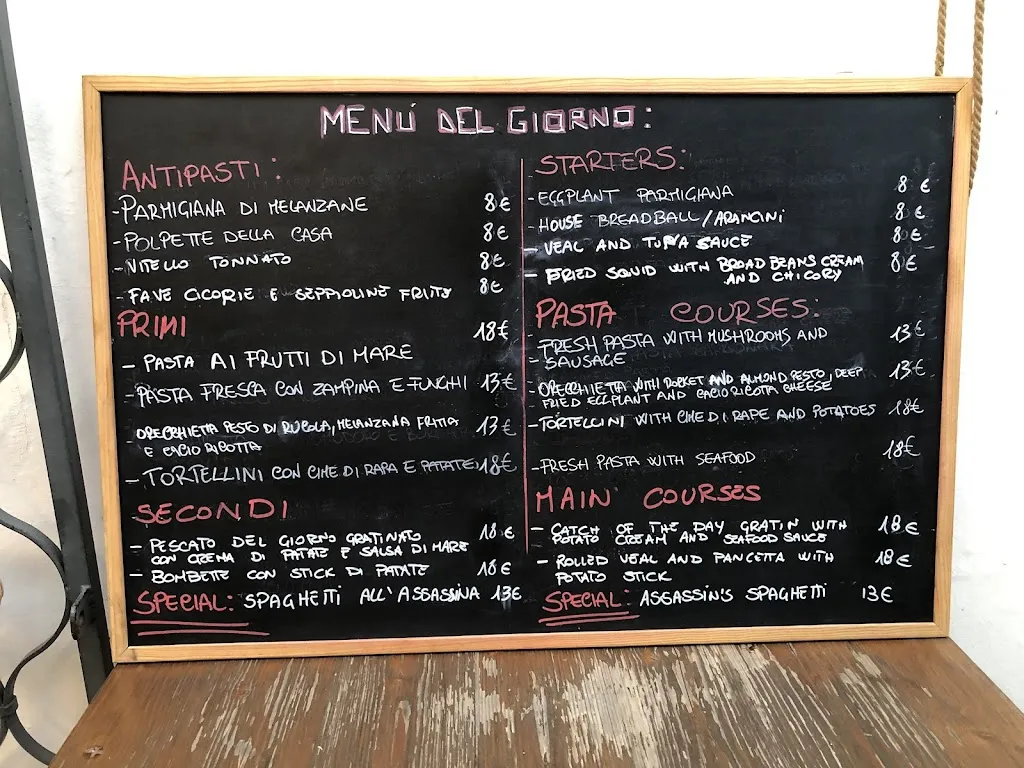 MENÚ DEL GIORNO:
ANTIPASTI:
-PARMIGIANA DI MELANZANE 8€
-POLPETTE DELLA CASA 8€
-VITELLO TONNATO 8€
- FAVE CICORIE E SEPPIOLINE FRITTE 8€
PRIMI
- PASTA AI FRUTTI DI MARE 18€
-PASTA FRESCA CON ZAMPINA E FUNGHI 13€
-ORECCHIETTA PESTO DI RUCOLA, MELANZANA FRITTA 13€
E CACIO RICOTTA
- TORTELLINI CON CIME DI RAPA E PATATE 18€
SECONDI
- PESCATO DEL GIORNO GRATINATO 18€
CON CREMA DI PATATE E SALSA DI MARE
- BOMBETTE CON STICK DI PATATE 18€
SPECIAL: SPAGHETTI ALL'ASSASSINA 13€
STARTERS:
-EGGPLANT PARMIGIANA 8 €
-HOUSE BREADBALL/ARANCINI 8 €
- VEAL AND TUNA SAUCE 8€
- FRIED SQUID WITH BROAD BEANS CREAM 8€
AND CHICORY
PASTA COURSES:
-FRESH PASTA WITH MUSHROOMS AND 13€
- SAUSAGE
-ORECCHIETTA WITH ROCKET AND ALMOND PESTO, DEEP 13€
FRIED EGGPLANT AND CACIORICOTA CHEESE
-TORTELLINI WITH CIME DI RAPE AND POTATOES 18€
-FRESH PASTA WITH SEAFOOD 18€
MAIN COURSES
- CATCH OF THE DAY GRATIN WITH 18€
POTATO CREAM AND SEAFOOD SAUCE
- ROLLED VEAL AND PANCETTA WITH 18€
POTATO STICK
SPECIAL: ASSASSIN'S SPAGHETTI 13€